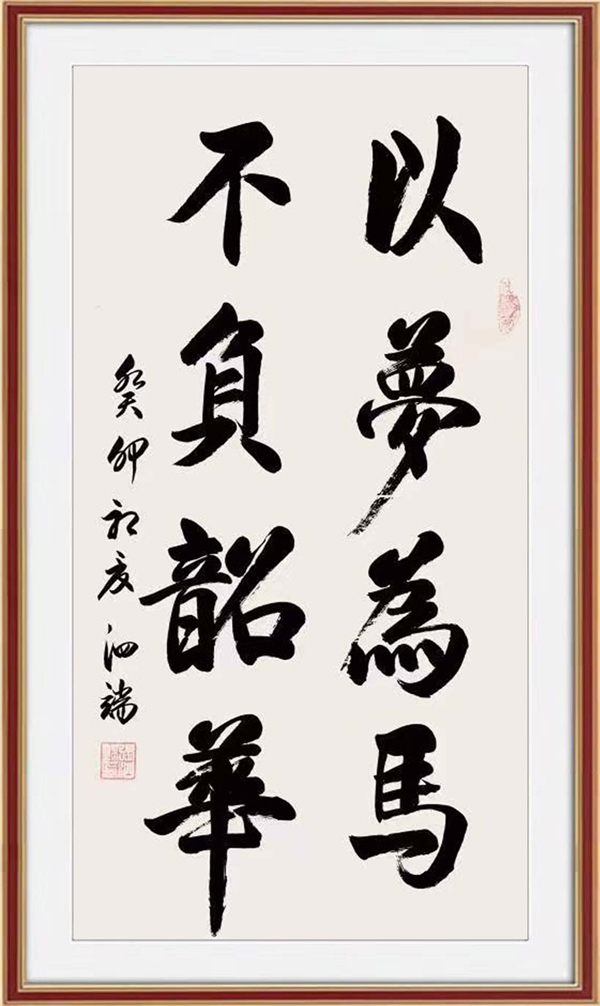 以夢為馬
不負韶華
癸卯初夏泗端